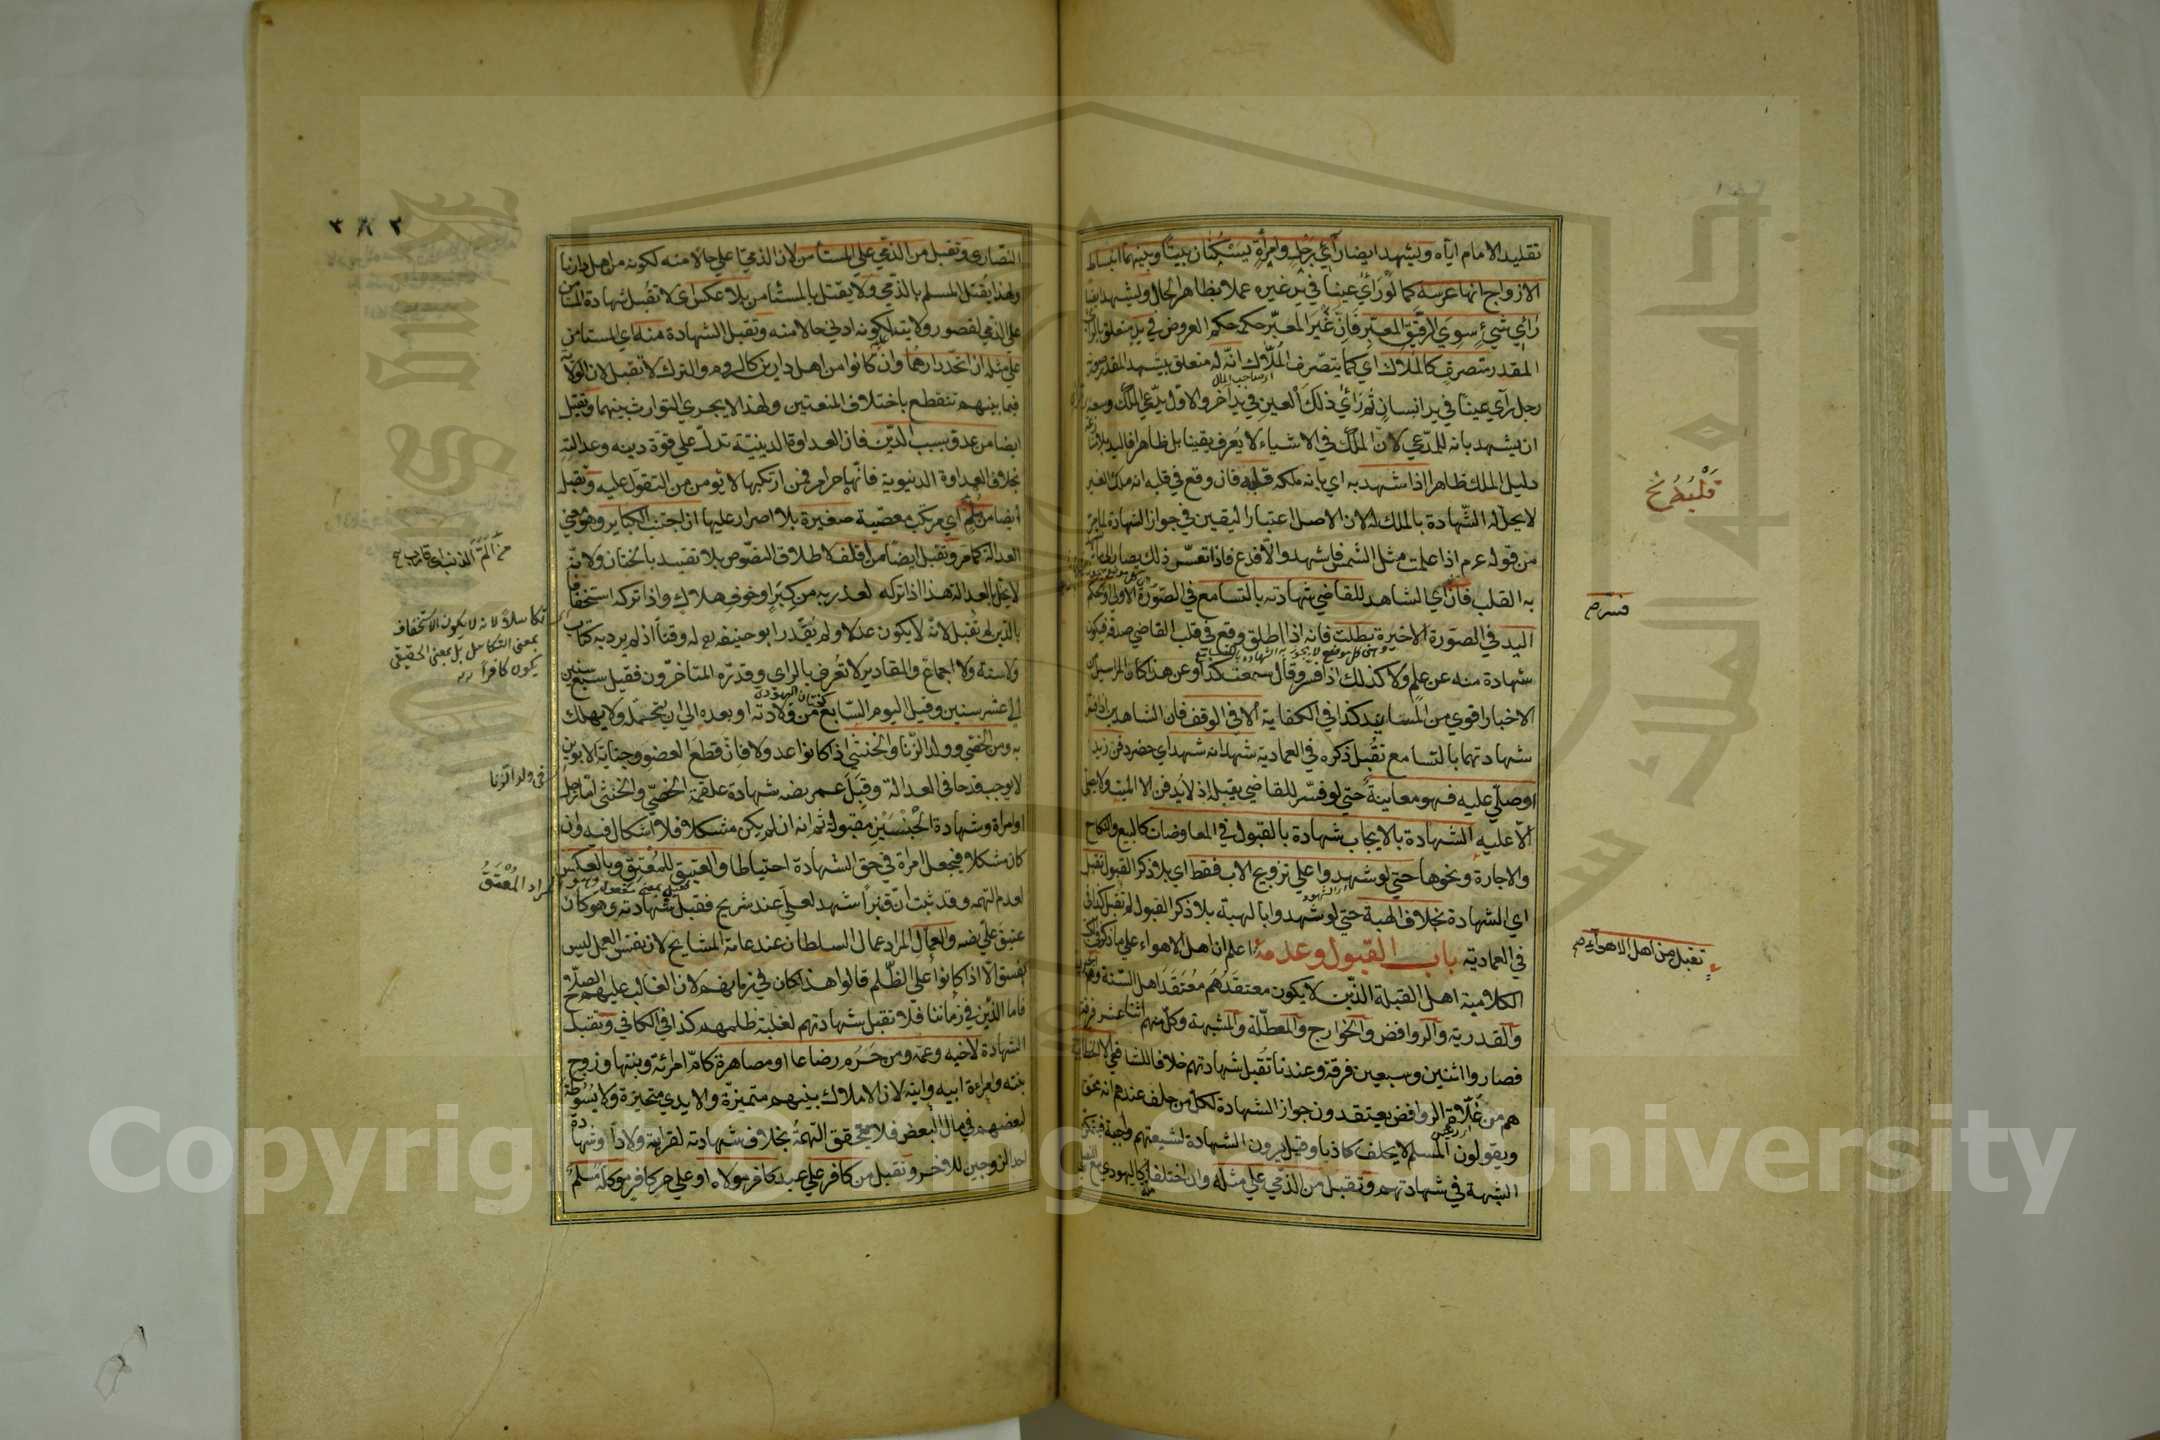 تقليد الامام اياه ويشهد ايضا رآئي رجل وامرأة يسكنان بيتا وبينهما انبساط
الازواج انها عرسه كما لو رأي عينا في يد غيره عملا بظاهر الحال ويشهد ايضا
رائي شيء سوي الرقيق المعبر فان غير المعبر حكمه حكم العروض في يد متعلق بالرائي
المقدر متصرف كالملاك اي كما يتصرف الملاك انه له متعلق بيشهد المقدر
رجل رآي عينا في يد انسان ثم رأي ذلك العين في يد آخر والاول يدعي الملك وسعه
ان يشهد بانه للمدعي لان الملك في الاشياء لا يعرف يقينا بل ظاهرا فاليد بلا
دليل الملك ظاهرا اذا شهد به اي بانه ملكه قلبه فان وقع في قلبه انه ملك الغير
لا يحل له الشهادة بالملك له لان الاصل اعتبار اليقين في جواز الشهادة لما مر
من قوله عم اذا علمت مثل الشمس فاشهد والا فدع فاذا تعسر ذلك يصار الي ما
به القلب فان اي الشاهد للقاضي شهادته بالتسامع في الصورة الاولي وبحكم
اليد في الصورة الاخيرة بطلت فانه اذا اطلق وقع في قلب القاضي صدقه فيكون
شهادة منه عن علم ولا كذلك اذا فسر وقال سمعت كذا وعن هذا كان المراسيل من
الاخبار اقوي من المسانيد كذا في الكفاية الا في الوقف فان الشاهدين اذا فسرا
شهادتهما بالتسامع تقبل ذكره في العمادية شهدا انه شهد اي حضر دفن زيد
او صلي عليه فهو معاينة حتي لو فسر للقاضي يقبله اذ لا يدفن الا الميت ولا يصلي
الا عليه الشهادة بالايجاب شهادة بالقبول في المعاوضات كالبيع والنكاح
والاجارة ونحوها حتي لو شهدوا علي تزويج الاب فقط اي بلا ذكر القبول تقبل
اي الشهادة بخلاف الهبة حتي لو شهدوا بالهبة بلا ذكر القبول لم تقبل كذا في
في العمادية باب القبول وعدمه اعلم ان اهل الاهواء علي ما ذكر في الكتب
الكلامية اهل القبلة الذين لا يكون معتقدهم معتقد اهل السنة وهم
والقدرية والروافض والخوارج والمعطلة والمشبهة وكل منهم اثنا عشر فرقة
فصاروا اثنين وسبعين فرقة وعندنا تقبل شهادتهم خلافا للشافعي الا الخطابية
هم من غلاة الروافض يعتقدون جواز الشهادة لكل من حلف عندهم انه محق
ويقولون المسلم لا يحلف كاذبا وقيل يرون الشهادة لشيعتهم واجبة فيتمكن
الشبهة في شهادتهم وتقبل من الذمي علي مثله وان اختلفا كاليهودي مع
قلبطيخ
فسر صح
تقبل من اهل الاهواء صح
النصاري وتقبل من الذمي علي المستأمن لان الذمي اعلي حالا منه لكونه من اهل دارنا
ولهذا يقتل المسلم بالذمي ولا يقتل بالمستأمن بلا عكس اي لا تقبل شهادة المستأمن
علي الذمي لقصور ولايته لكونه ادني حالا منه وتقبل الشهادة منه اي المستأمن
علي مثله ان اتحد دارهما وان كانوا من اهل دارين كالروم والترك لا تقبل لان الولاية
فيما بينهم تنقطع باختلاف المنعتين ولهذا لا يجري التوارث بينهما وتقبل
ايضا من عدو بسبب الدين فان العداوة الدينية تدل علي قوة دينه وعدالته
بخلاف العداوة الدنيوية فانها حرام فمن ارتكبها لا يؤمن من التقول عليه وتقبل
ايضا من ملم اي مرتكب معصية صغيرة بلا اصرار عليها ان اجتنب الكبائر وهو معني
العدالة كما مر وتقبل ايضا من اقلف لاطلاق النصوص بلا تقييد بالختان ولانه
لا يخل بالعدالة هذا اذا تركه لعذر به من كبر او خوف هلاك واذا تركه استخفافا
بالدين لم تقبل لانه لا يكون عدلا ولم يقدر ابو حنيفة له وقتا اذ لم يرد به كتاب
ولا سنة ولا اجماع والمقادير لا تعرف بالراي وقدره المتاخرون فقيل سبع سنين
الي عشر سنين وقيل اليوم السابع من ولادته او بعده الي ان يتحمله ولا يهلك
به ومن الخصي وولد الزنا والخنثي اذا كانوا عدولا فان قطع العضو وجناية الابوين
لا يوجب قدحا في العدالة وقبل عمر رضه شهادة علقمة الخصي والخنثي اما رجل
او امرأة وشهادة الجنسين مقبولة ثم انه ان لم يكن مشكلا فلا اشكال فيه وان
كان مشكلا فيجعل امرأة في حق الشهادة احتياطا والعتيق للمعتق وبالعكس
لعدم التهمة وقد ثبت ان قنبرا شهد لعلي عند شريح فقبل شهادته وهو كان
عتيق علي رضه والعمال المراد عمال السلطان عند عامة المشايخ لان نفس العمل ليس
بفسق الا اذا كانوا علي الظلم قالوا هذا كان في زمانهم لان الغالب عليهم الصلاح
فاما الذين في زماننا فلا تقبل شهادتهم لغلبة ظلمهم كذا في الكافي وتقبل
الشهادة لاخيه وعمه ومن حرم رضاعا او مصاهرة كام امرأته وبنتها وزوج
بنته وامرأة ابيه وابنه لان الاملاك بينهم متميزة والايدي متحيزة ولا بسوطة
لبعضهم في مال البعض فلا يتحقق التهمة بخلاف شهادته لقرابته ولادا وشهادة
احد الزوجين للاخر وتقبل من كافر علي عبد كافر مولاه او علي حر كافر موكله مسلم
٣٨٢
تكاسلا لانه لا يكون الاستخفاف
بمعني التكاسل بل بمعني الحقيقي
يكون كافرا
في ولد الزنا
المراد المعتق
Copyright © King Saud University
جامعة الملك سعود